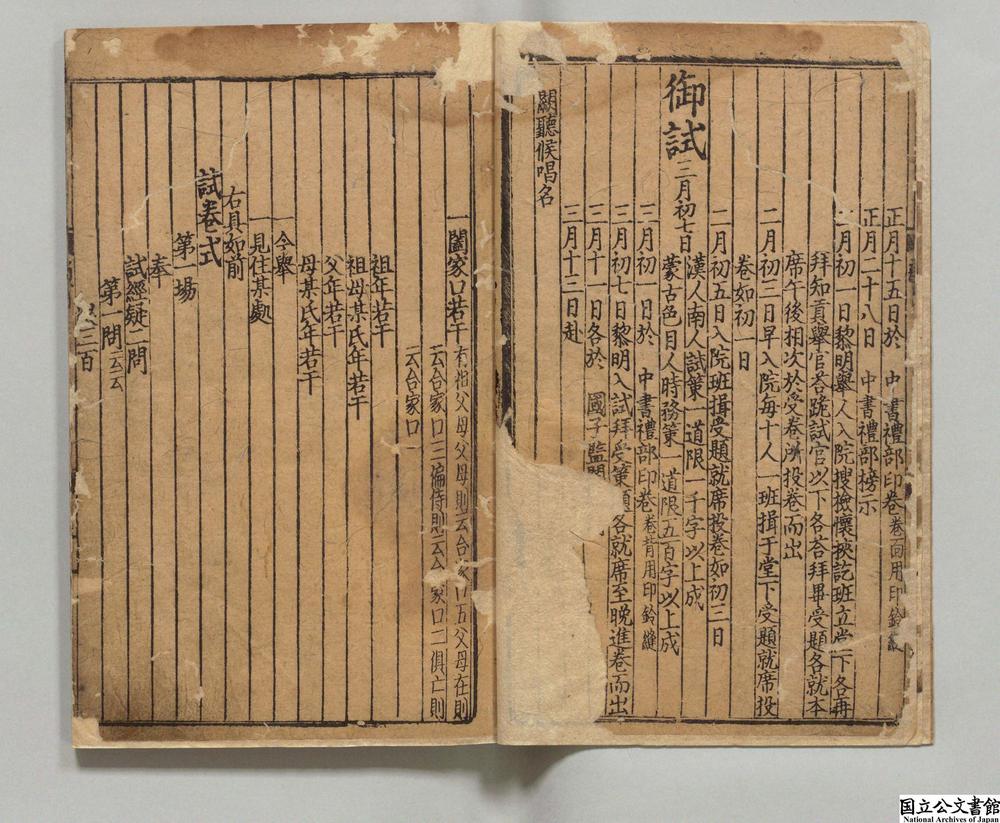 正月十五日於　中書禮部印卷卷面用印鈐縫
正月二十八日　中書禮部榜示
二月初一日黎明舉人入院搜撿懷挾訖班立堂下各再
拜知貢舉官荅跪試官以下各荅拜畢受題各就本
席午後相次於受卷所投卷而出
二月初三日早入院每十人一班揖于堂下受題就席投
卷如初一日
二月初五日入院班揖受題就席投卷如初三日
御試三月初七日
漢人南人試策一道限一千字以上成
蒙古色目人時務策一道限五百字以上成
三月初一日於　中書禮部印卷卷背用印鈐縫
三月初七日黎明入試拜受策題各就席至晚進卷而出
三月十一日各於　國子監
三月十三日赴
闕聽候唱名
一闔家口若干有祖父母父母則云合家口五父母在則
云合家口三偏侍則云合家口二俱亡則
云合家口一
祖年若干
祖母某氏年若干
父年若干
母某氏年若干
一今舉
一見住某處
右具如前
試卷式
第一場
奉
試經疑二問
第一問云云
三百
国立公文書館
National Archives of Japan